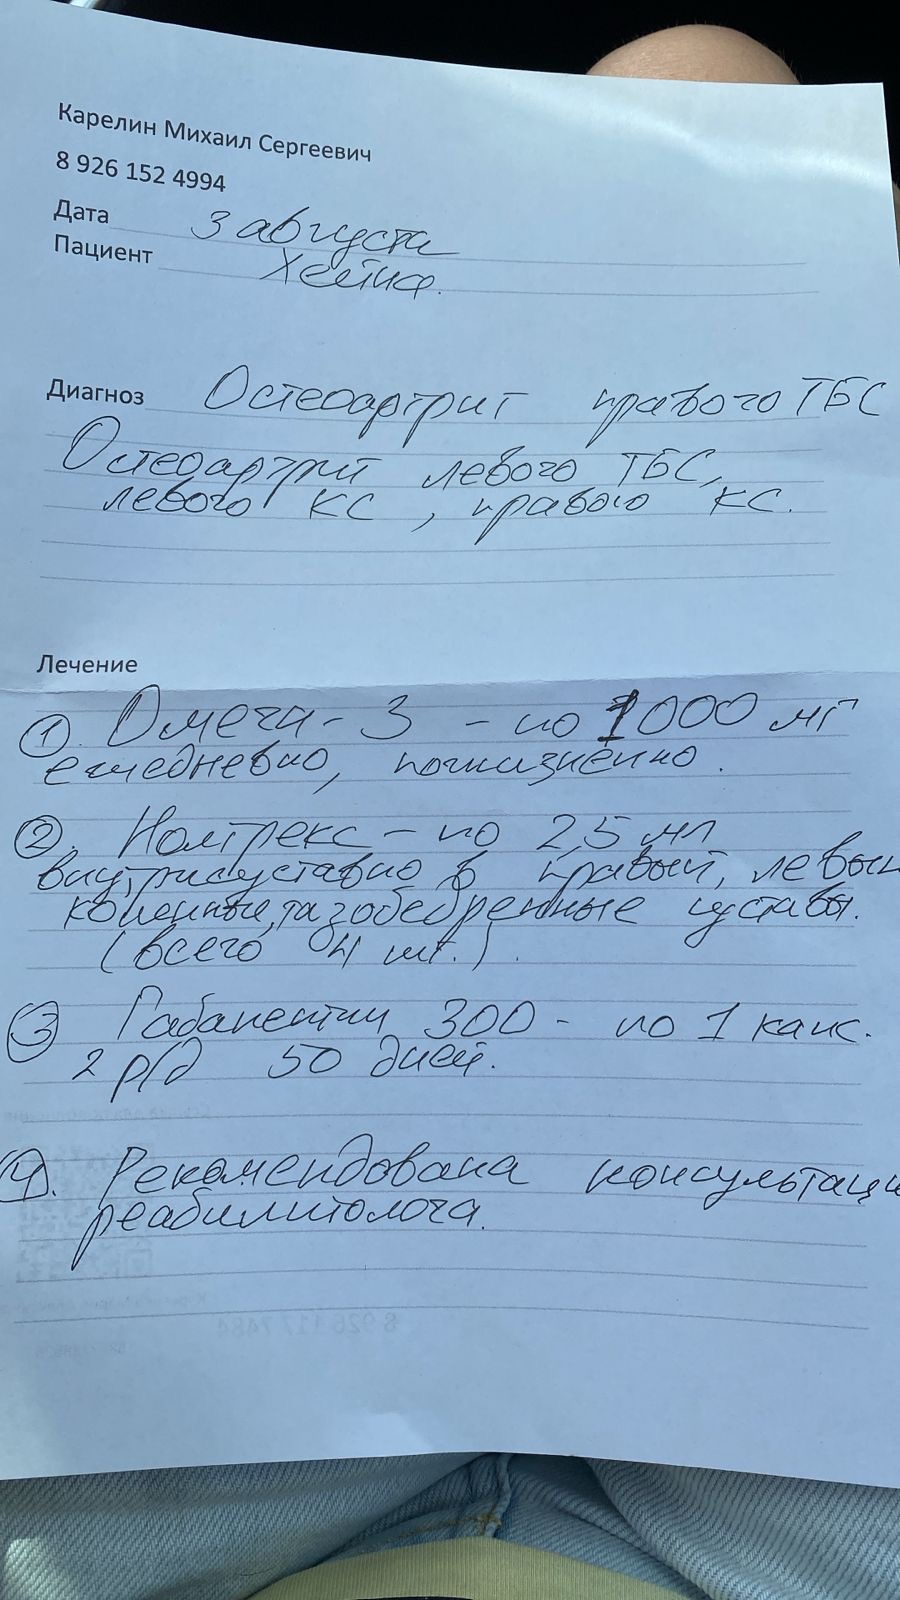 Карелин Михаил Сергеевич
8 926 152 4994
Дата 3 августа
Пациент
Диагноз Остеоартрит правого ТБС
Остеоартрит левого ТБС,
левого КС, правого КС.
Лечение
① Омега-3 - по 1000 мг
ежедневно, пожизненно.
②. Нолтрекс - по 2,5 мл
внутрисуставно в правый, левый
коленные, тазобедренные суставы.
(всего 4 шт.).
③ Габапентин 300 - по 1 капс.
2 р/д 50 дней.
④. Рекомендована консультаци
реабилитолога.
8 926 117 7484